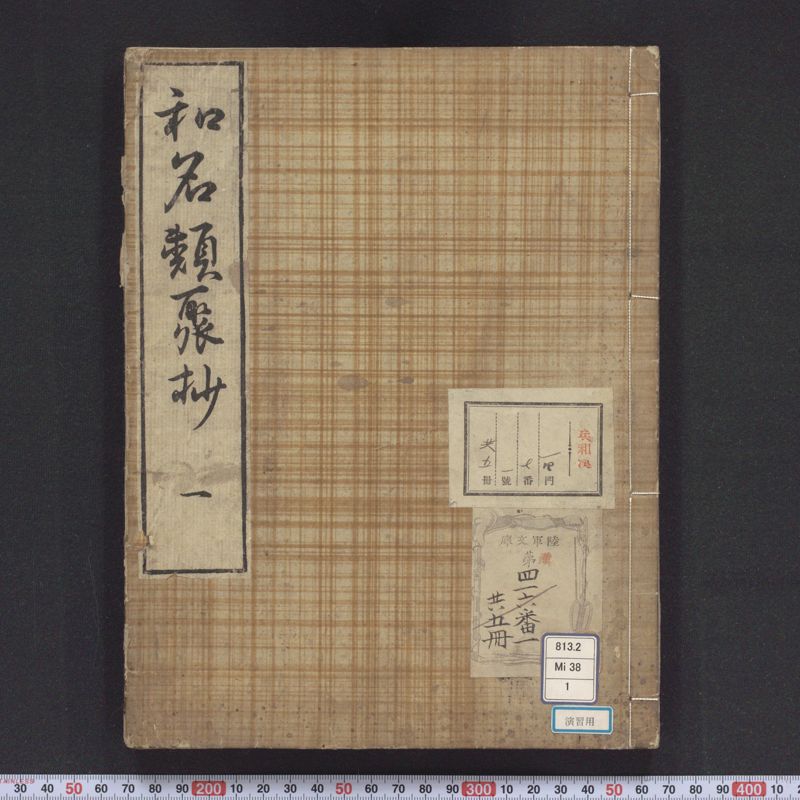 和名類聚抄 一
門
番
號
冊
共五
陸軍文庫
第
四一六番一
共五冊
813.2
Mi 38
1
演習用
30 40 50 60 70 80 90 200 10 20 30 40 50 60 70 80 90 300 10 20 30 40 50 60 70 80 90 400 10 20